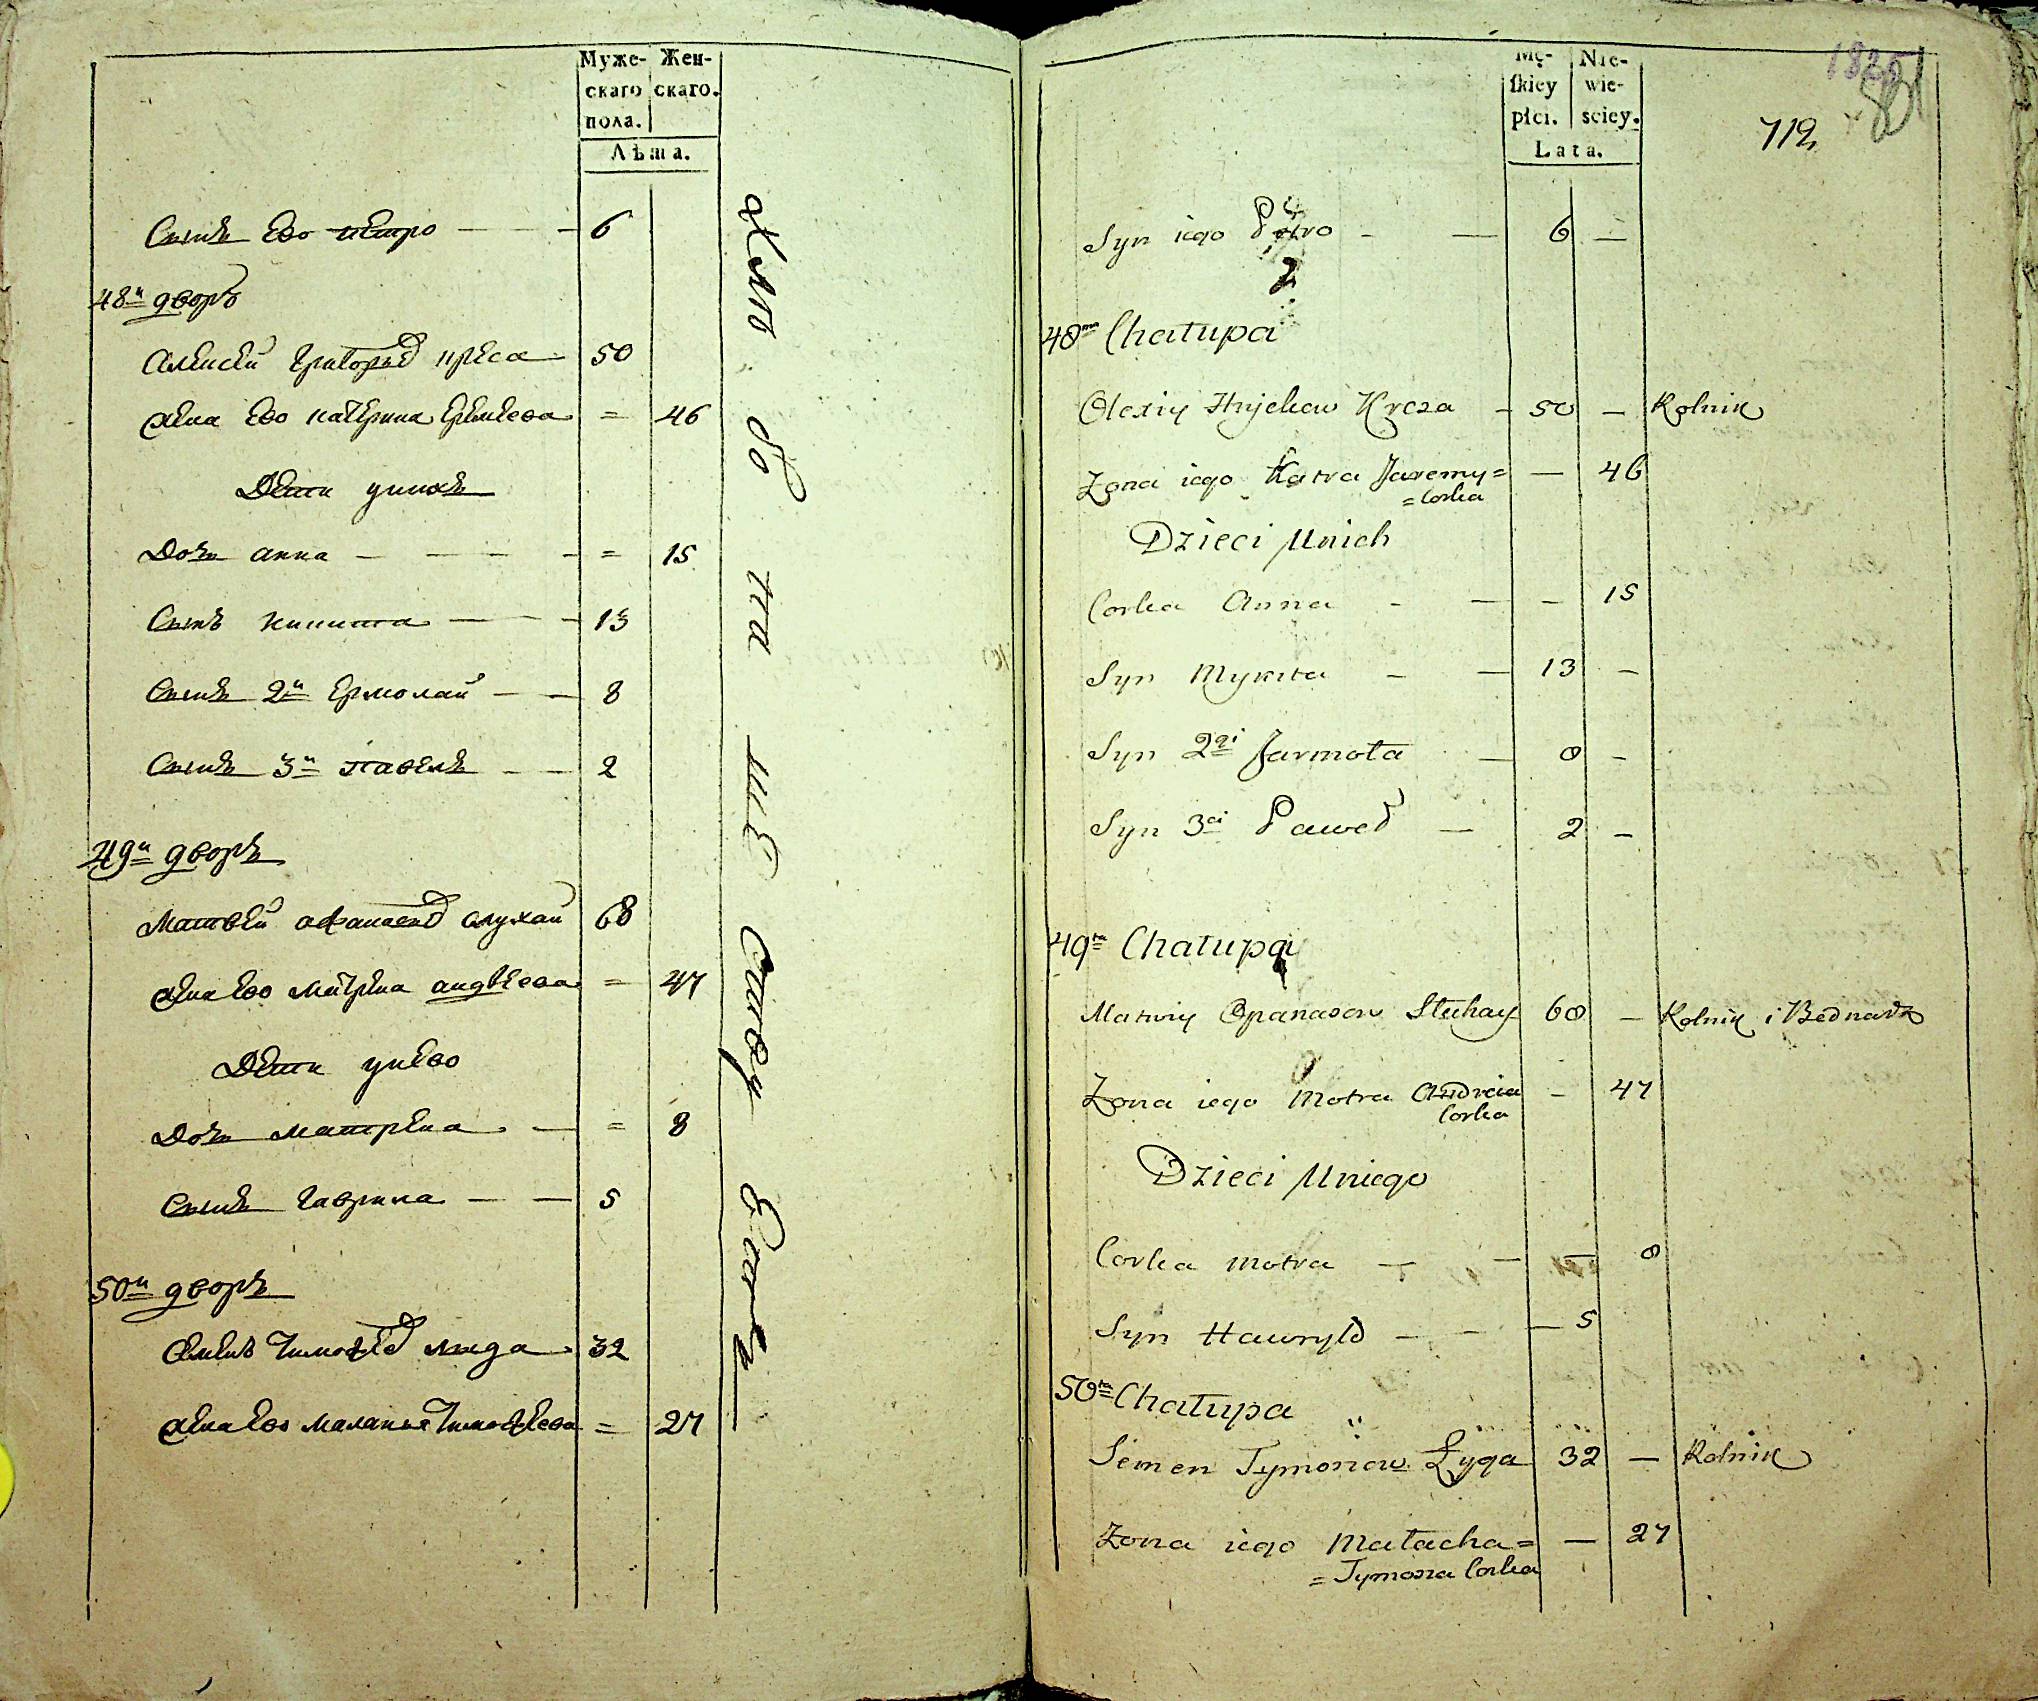 Муже-
скаго
пола.
Жен-
скаго.
Лѣта.
Сынъ ево петро — — — 6
48й дворъ
Алексей Григорьевъ креса 50
жена ево катерина Еремеева = 46
Дети уних
Дочь анна — — — = 15
Сынъ никита — — 13
Сынъ 2й Ермолай — — 8
Сынъ 3й павелъ — — 2
49й дворъ
Матвей афанасьевъ слухай 68
жена ево матрена андреева = 47
Дети унево
Дочь матрена — = 8
Сынъ гаврила — — 5
50й дворъ
Семенъ Тимофеевъ лига 32
жена ево маланья Тимофеева = 27
Mę-
skiey
płci.
Nie-
wie-
sciey.
Lata.
712
Syn iego Petro - — 6 —
48ma Chałupa
Olexiy Hryckow Kreza - 50 — Rolnik
Żona iego Katra Jaremy= — 46
=Corka
Dzieci Unich
Corka Anna - — - 15
Syn Mykita - — 13 -
Syn 2gi Jarmoła — 8 -
Syn 3ci Paweł — 2 —
49ta Chałupa
Matwiy Opanasow Słuchay 68 — Rolnik i Bednarz
Żona iego Motra Andreia - 47
Corka
Dzieci Uniego
Corka Motra — — — 8
Syn Hawryło — - — 5
50ta Chałupa
Semen Tymoszow Łyga 32 — Rolnik
Żona iego Małacha= — 27
=Tymosza Corka